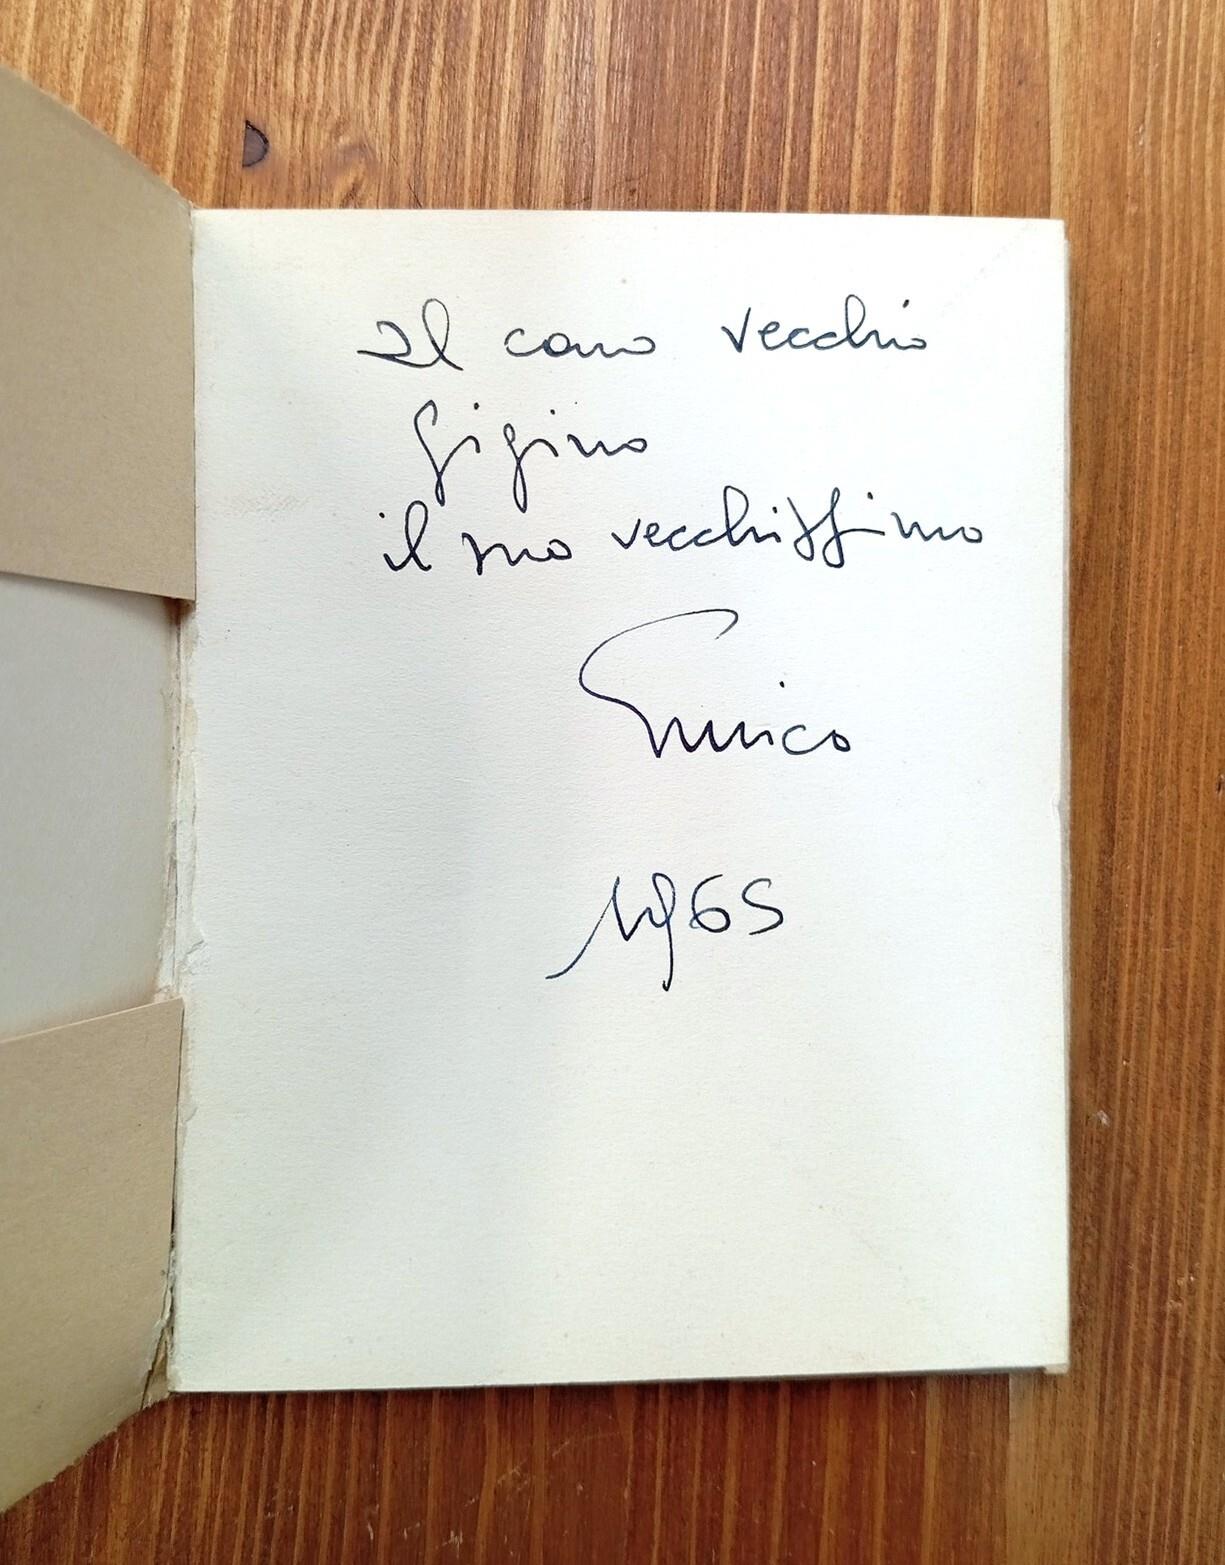 Al caro vecchio
Gigino
il suo vecchissimo
Enrico
1965